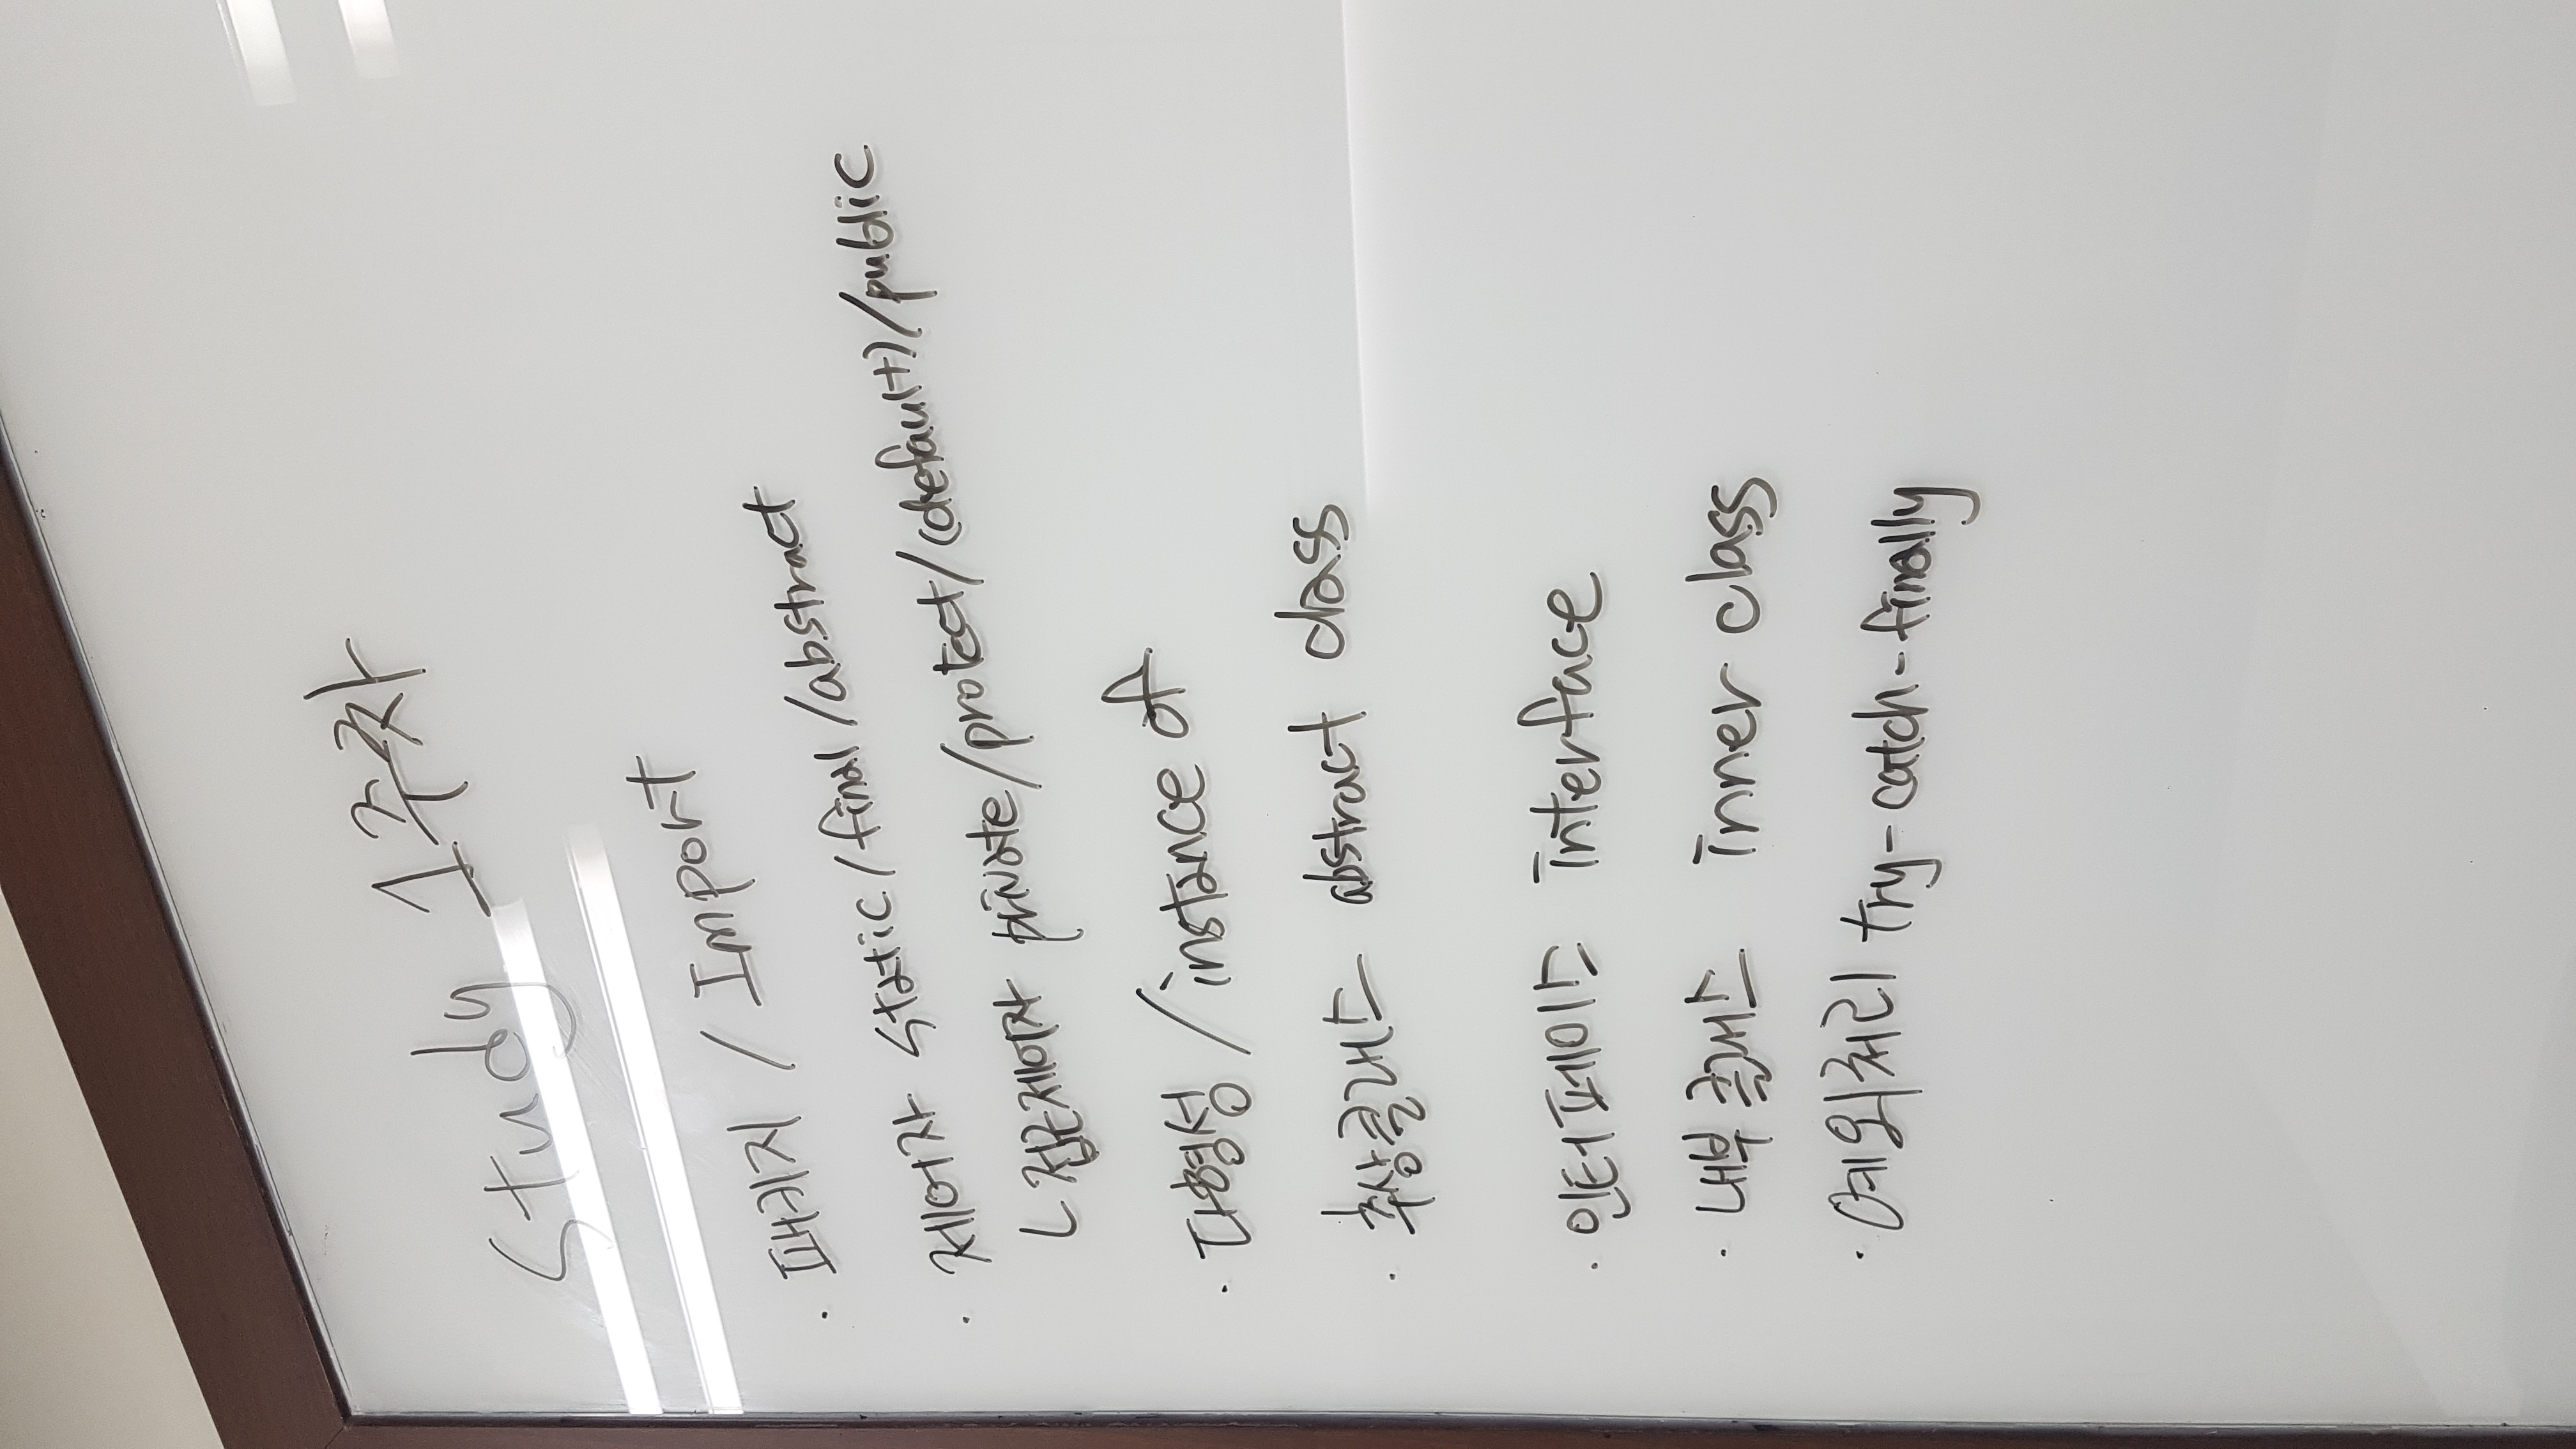 Study 1주차
· 패키지 / Import
· 제어자 static/final/abstract
ㄴ 접근제어자 private/protect/(default)/public
· 다형성 / instance of
· 추상클래스 abstract class
· 인터페이스 interface
· 내부클래스 inner class
· 예외처리 try-catch-finally